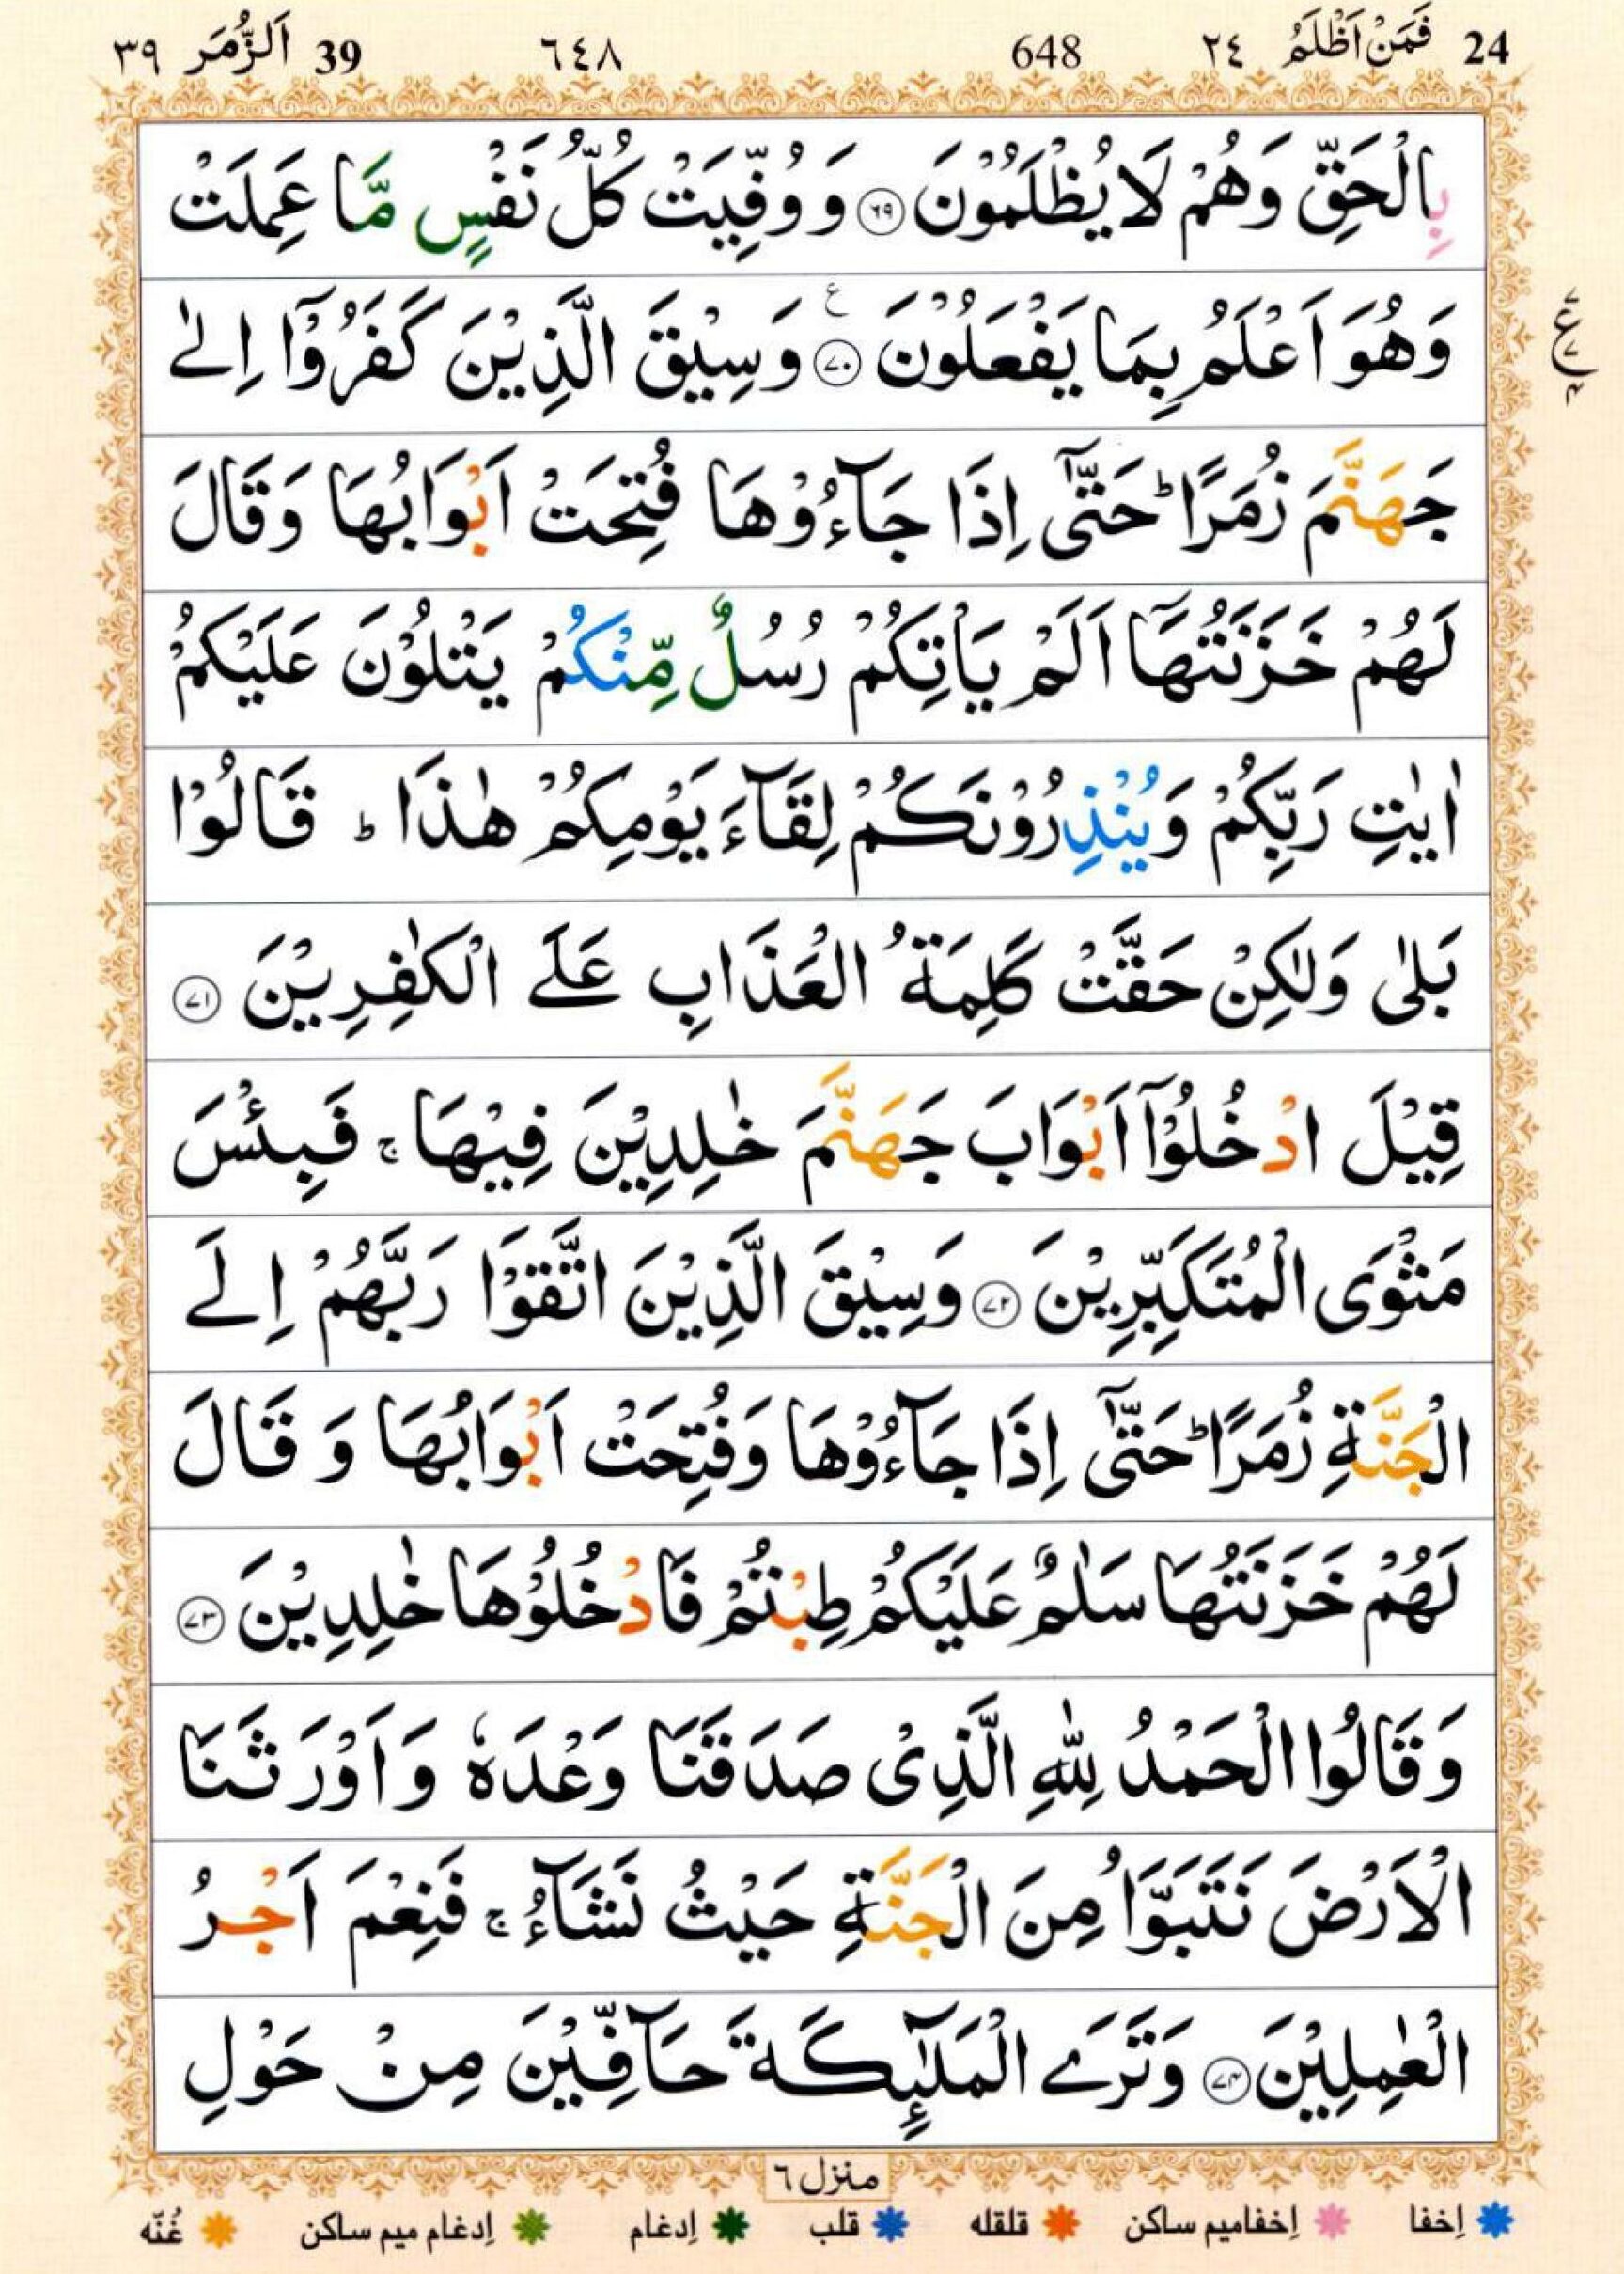 24 فَمَنْ اَظْلَمُ ٢٤ 648 ٦٤٨ 39 اَلزُّمَر ٣٩
بِالْحَقِّ وَهُمْ لَا يُظْلَمُوْنَ ۝٦٩ وَ وُفِّيَتْ كُلُّ نَفْسٍ مَّا عَمِلَتْ
وَهُوَ اَعْلَمُ بِمَا يَفْعَلُوْنَ ۝٧٠ ع وَسِيْقَ الَّذِيْنَ كَفَرُوْٓا اِلٰى
جَهَنَّمَ زُمَرًاؕ حَتّٰىٓ اِذَا جَآءُوْهَا فُتِحَتْ اَبْوَابُهَا وَقَالَ
لَهُمْ خَزَنَتُهَآ اَلَمْ يَاْتِكُمْ رُسُلٌ مِّنْكُمْ يَتْلُوْنَ عَلَيْكُمْ
اٰيٰتِ رَبِّكُمْ وَيُنْذِرُوْنَكُمْ لِقَآءَ يَوْمِكُمْ هٰذَا ؕ قَالُوْا
بَلٰى وَلٰكِنْ حَقَّتْ كَلِمَةُ الْعَذَابِ عَلَى الْكٰفِرِيْنَ ۝٧١
قِيْلَ ادْخُلُوْٓا اَبْوَابَ جَهَنَّمَ خٰلِدِيْنَ فِيْهَا ۚ فَبِئْسَ
مَثْوَى الْمُتَكَبِّرِيْنَ ۝٧٢ وَسِيْقَ الَّذِيْنَ اتَّقَوْا رَبَّهُمْ اِلَى
الْجَنَّةِ زُمَرًاؕ حَتّٰىٓ اِذَا جَآءُوْهَا وَفُتِحَتْ اَبْوَابُهَا وَ قَالَ
لَهُمْ خَزَنَتُهَا سَلٰمٌ عَلَيْكُمْ طِبْتُمْ فَادْخُلُوْهَا خٰلِدِيْنَ ۝٧٣
وَقَالُوا الْحَمْدُ لِلّٰهِ الَّذِىْ صَدَقَنَا وَعْدَهٗ وَاَوْرَثَنَا
الْاَرْضَ نَتَبَوَّاُ مِنَ الْجَنَّةِ حَيْثُ نَشَآءُ ۚ فَنِعْمَ اَجْرُ
الْعٰمِلِيْنَ ۝٧٤ وَتَرَى الْمَلٰٓئِكَةَ حَآفِّيْنَ مِنْ حَوْلِ
منزل ٦
اِخفا اِخفامیم ساکن قلقله قلب اِدغام اِدغام میم ساکن غُنّه